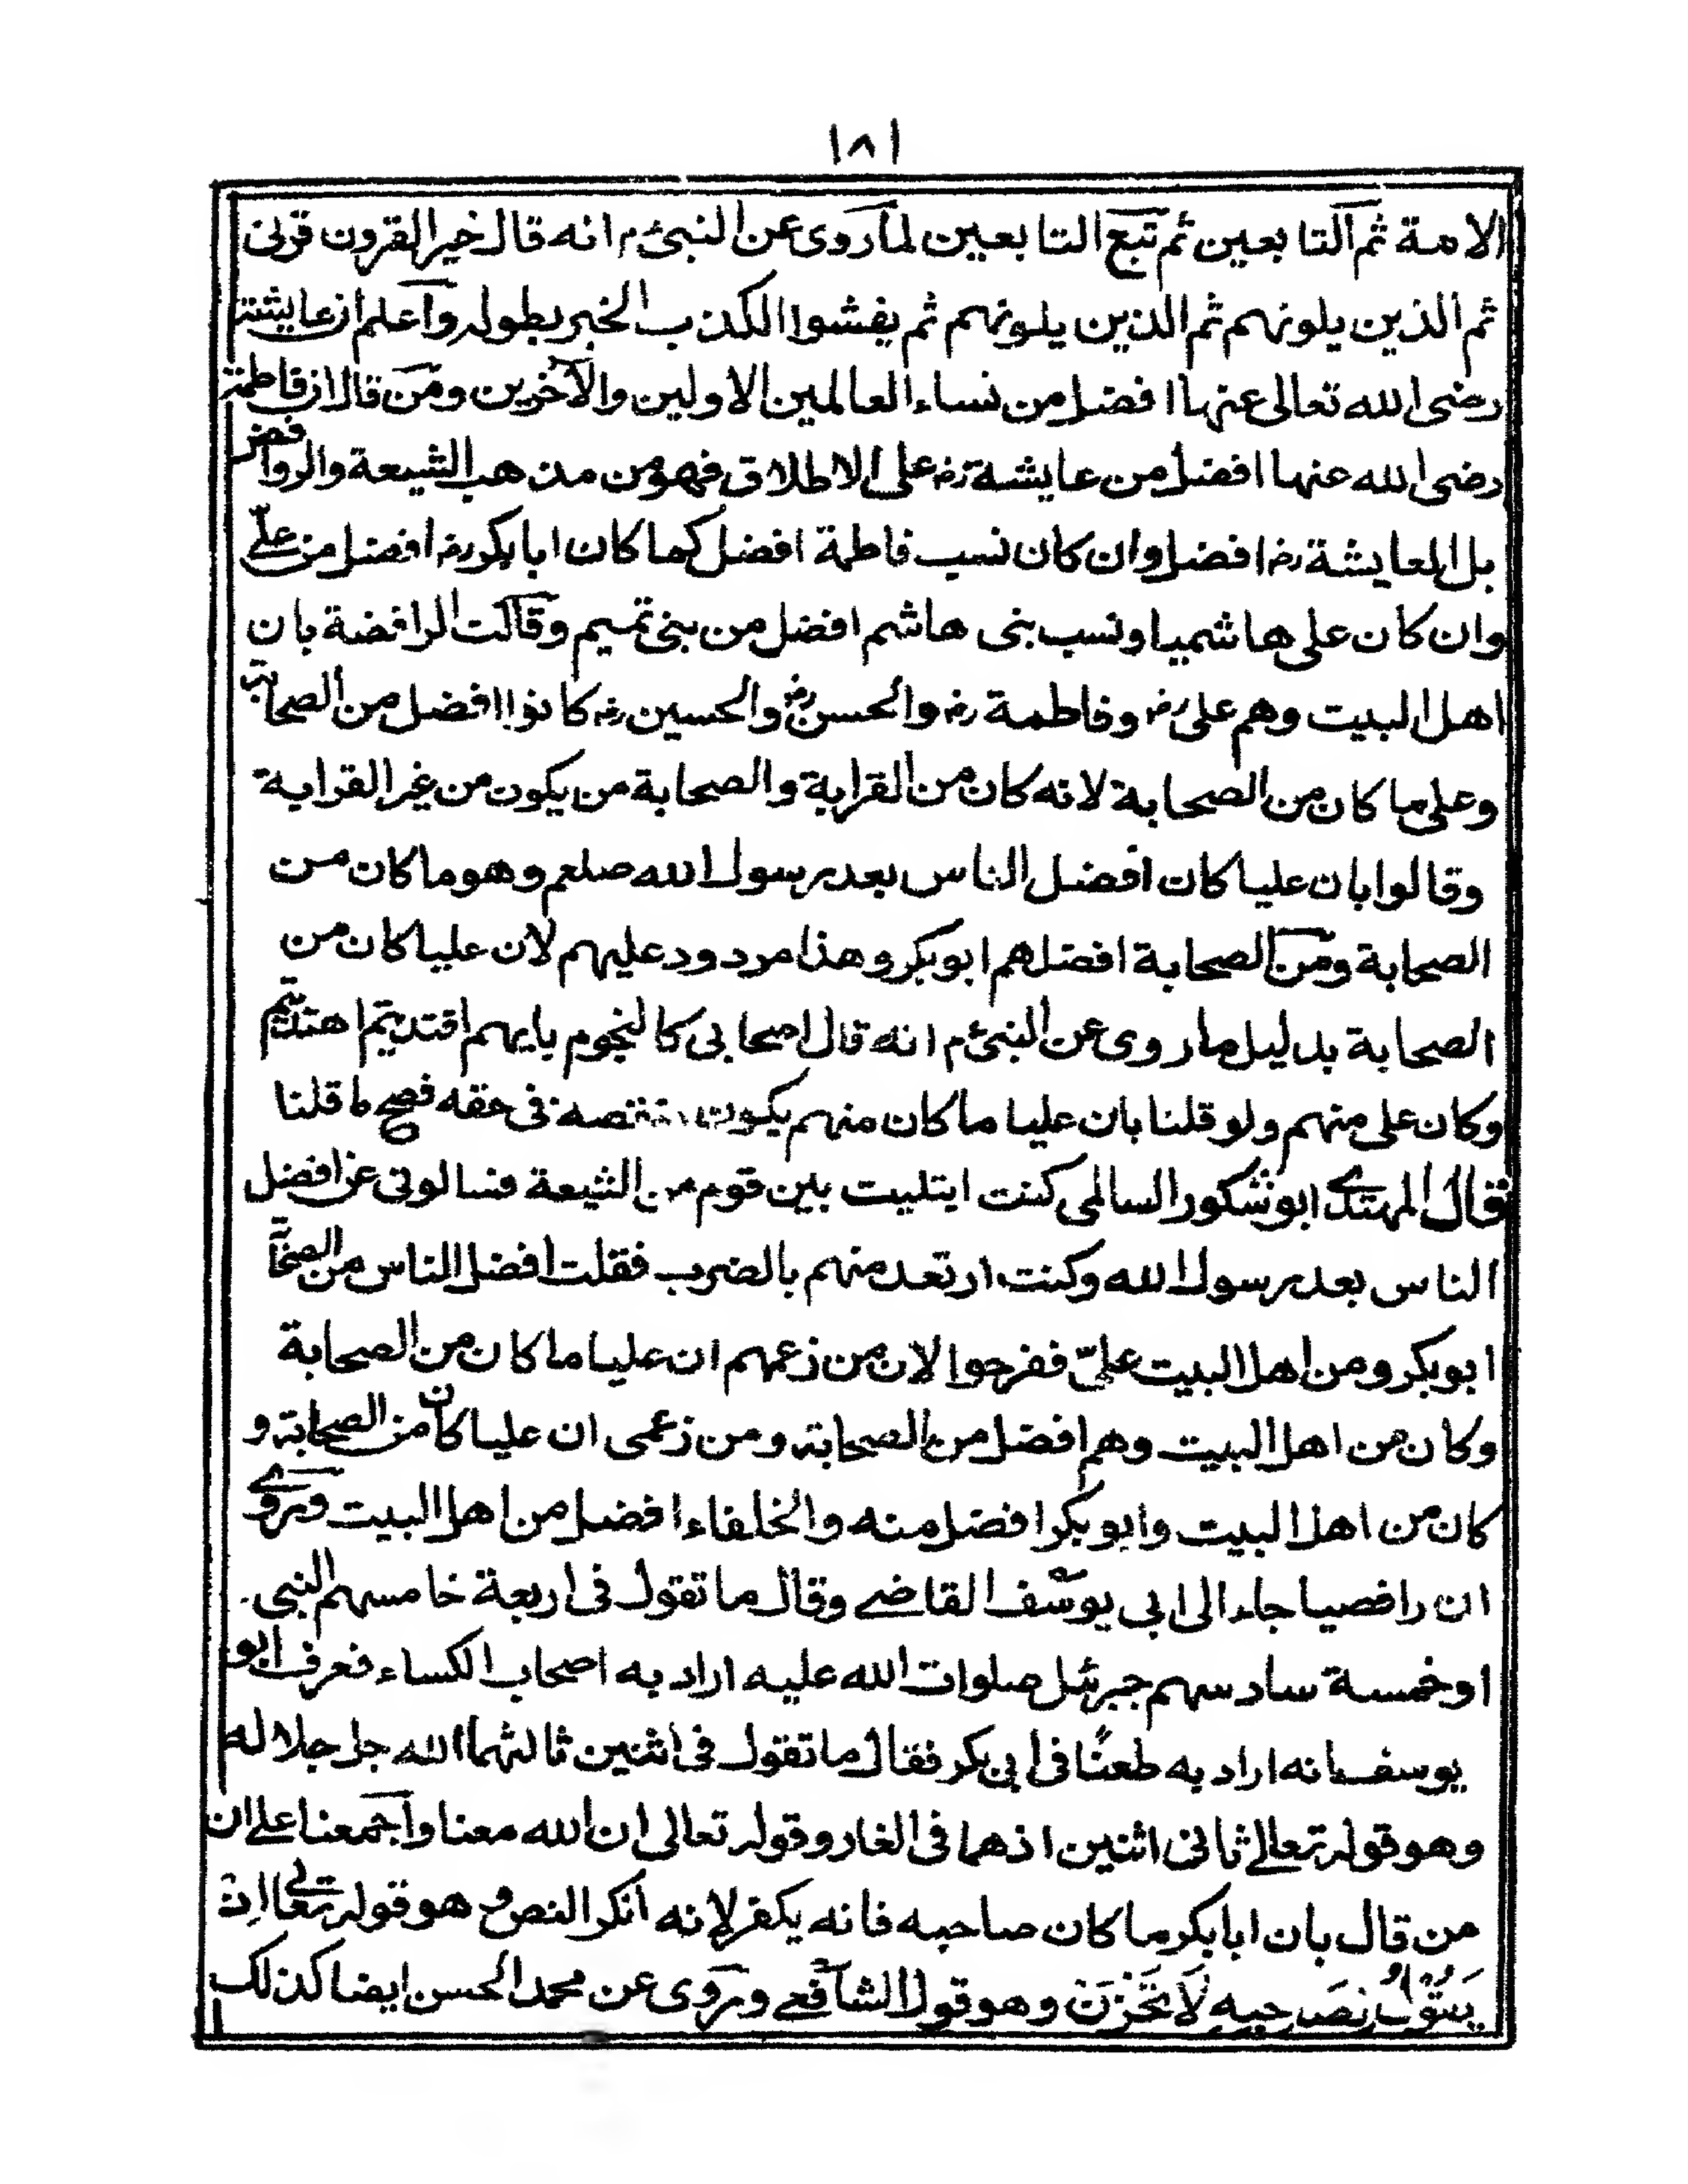 ١٨١
الامة ثم التابعين ثم تبع التابعين لما روى عن النبىء م انه قال خير القرون قرنى
ثم الذين يلونهم ثم الذين يلونهم ثم يفشوا الكذب الخبر بطوله واعلم ان عايشة
رضى الله تعالى عنها افضل من نساء العالمين الاولين والآخرين ومن قال ان فاطمة
رضى الله عنها افضل من عايشة رض على الاطلاق فهو من مذهب الشيعة والروافض
بل العايشة رض افضل وان كان نسب فاطمة افضل كما كان ابا بكر رض افضل من علي
وان كان على هاشميا ونسب بنى هاشم افضل من بنى تميم وقالت الرافضة بان
اهل البيت وهم على رض وفاطمة رض والحسن رض والحسين رض كانوا افضل من الصحابة
وعلى ما كان من الصحابة لانه كان من القرابة والصحابة من يكون من غير القرابة
وقالوا بان عليا كان افضل الناس بعد رسول الله صلعم وهو ما كان من
الصحابة ومن الصحابة افضلهم ابو بكر وهذا مردود عليهم لان عليا كان من
الصحابة بدليل ما روى عن النبىء م انه قال اصحابى كالنجوم بايهم اقتديتم اهتديتم
وكان على منهم ولو قلنا بان عليا ما كان منهم يكون منقصة فى حقه فصح ما قلنا
فقال المهتدے ابو شكور السالمى كنت ابتليت بين قوم من الشيعة فسالونى عن افضل
الناس بعد رسول الله وكنت ارتعد منهم بالضرب فقلت افضل الناس من الصحابة
ابو بكر ومن اهل البيت علىّ ففرحوا لان من زعمهم ان عليا ما كان من الصحابة
وكان من اهل البيت وهم افضل من الصحابة ومن زعمى ان عليا كان من الصحابة و
كان من اهل البيت وابو بكر افضل منه والخلفاء افضل من اهل البيت وروے
ان رافضيا جاء الى ابى يوسف القاضے وقال ما تقول فى اربعة خامسهم النبى
او خمسة سادسهم جبرئيل صلوات الله عليه اراد به اصحاب الكساء فعرف ابو
يوسف بانه اراد به طعنًا فى ابى بكر فقال ما تقول فى اثنين ثالثهما الله جل جلاله
وهو قوله تعالے ثانى اثنين اذ هما فى الغار وقوله تعالى ان الله معنا واجمعنا علے ان
من قال بان ابا بكر ما كان صاحبه فانه يكفر لانه انكر النص وهو قوله تعالى اذ
يَقُوْلُ لِصَاحِبِهِ لَا تَحْزَنْ وهو قول الشافعے وروى عن محمد الحسن ايضا كذلك